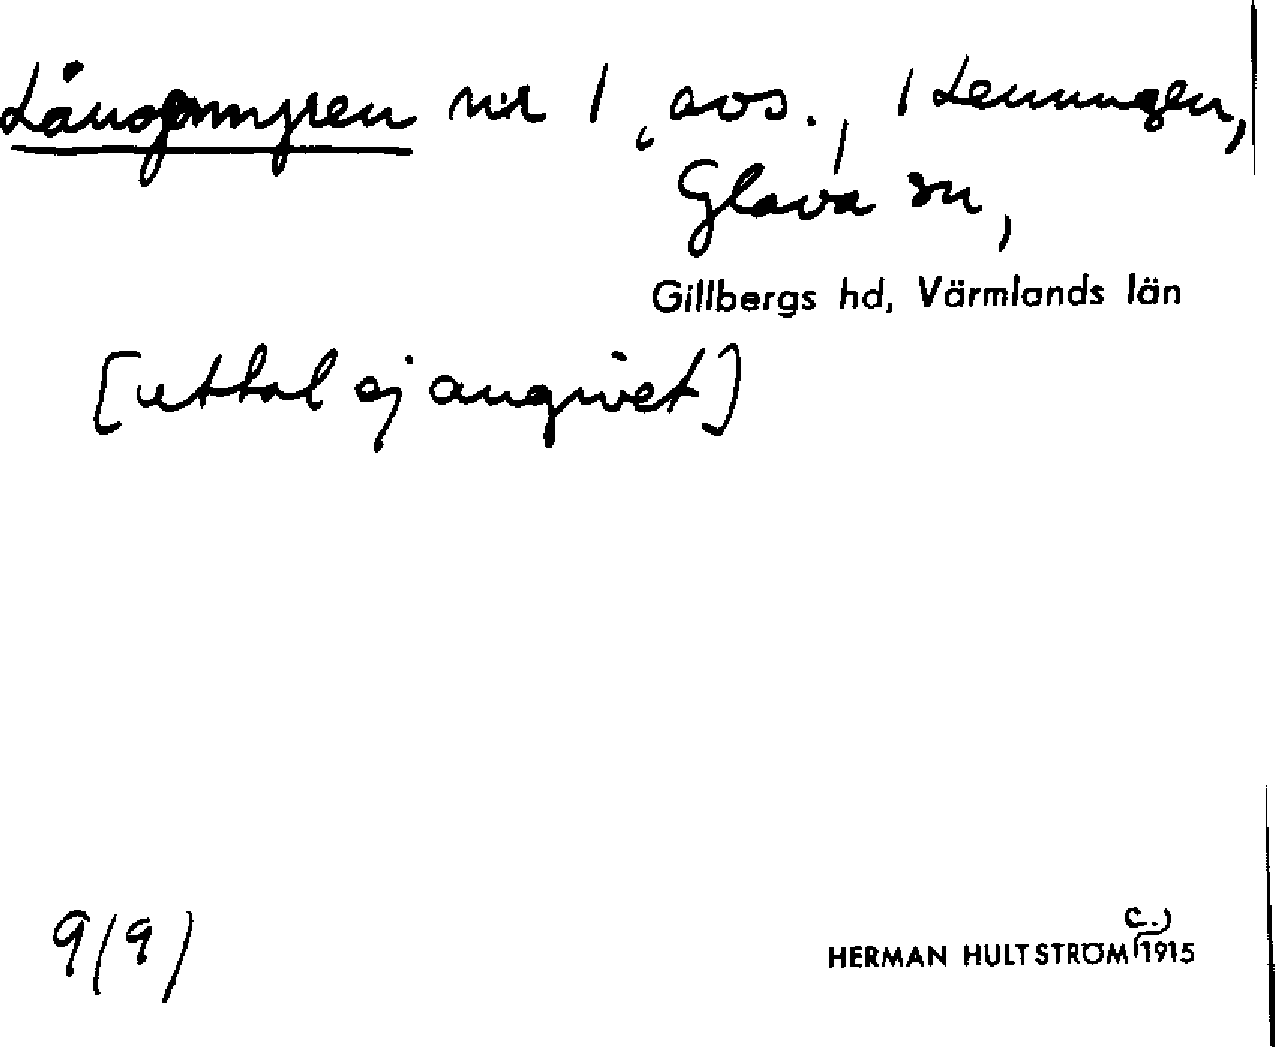 Långmyren nr 1, avs., i Lenungen,
Glava sn,
Gillbergs hd, Värmlands län
[uttal ej angivet]
c.)
9(9) HERMAN HULTSTRÖM 1915